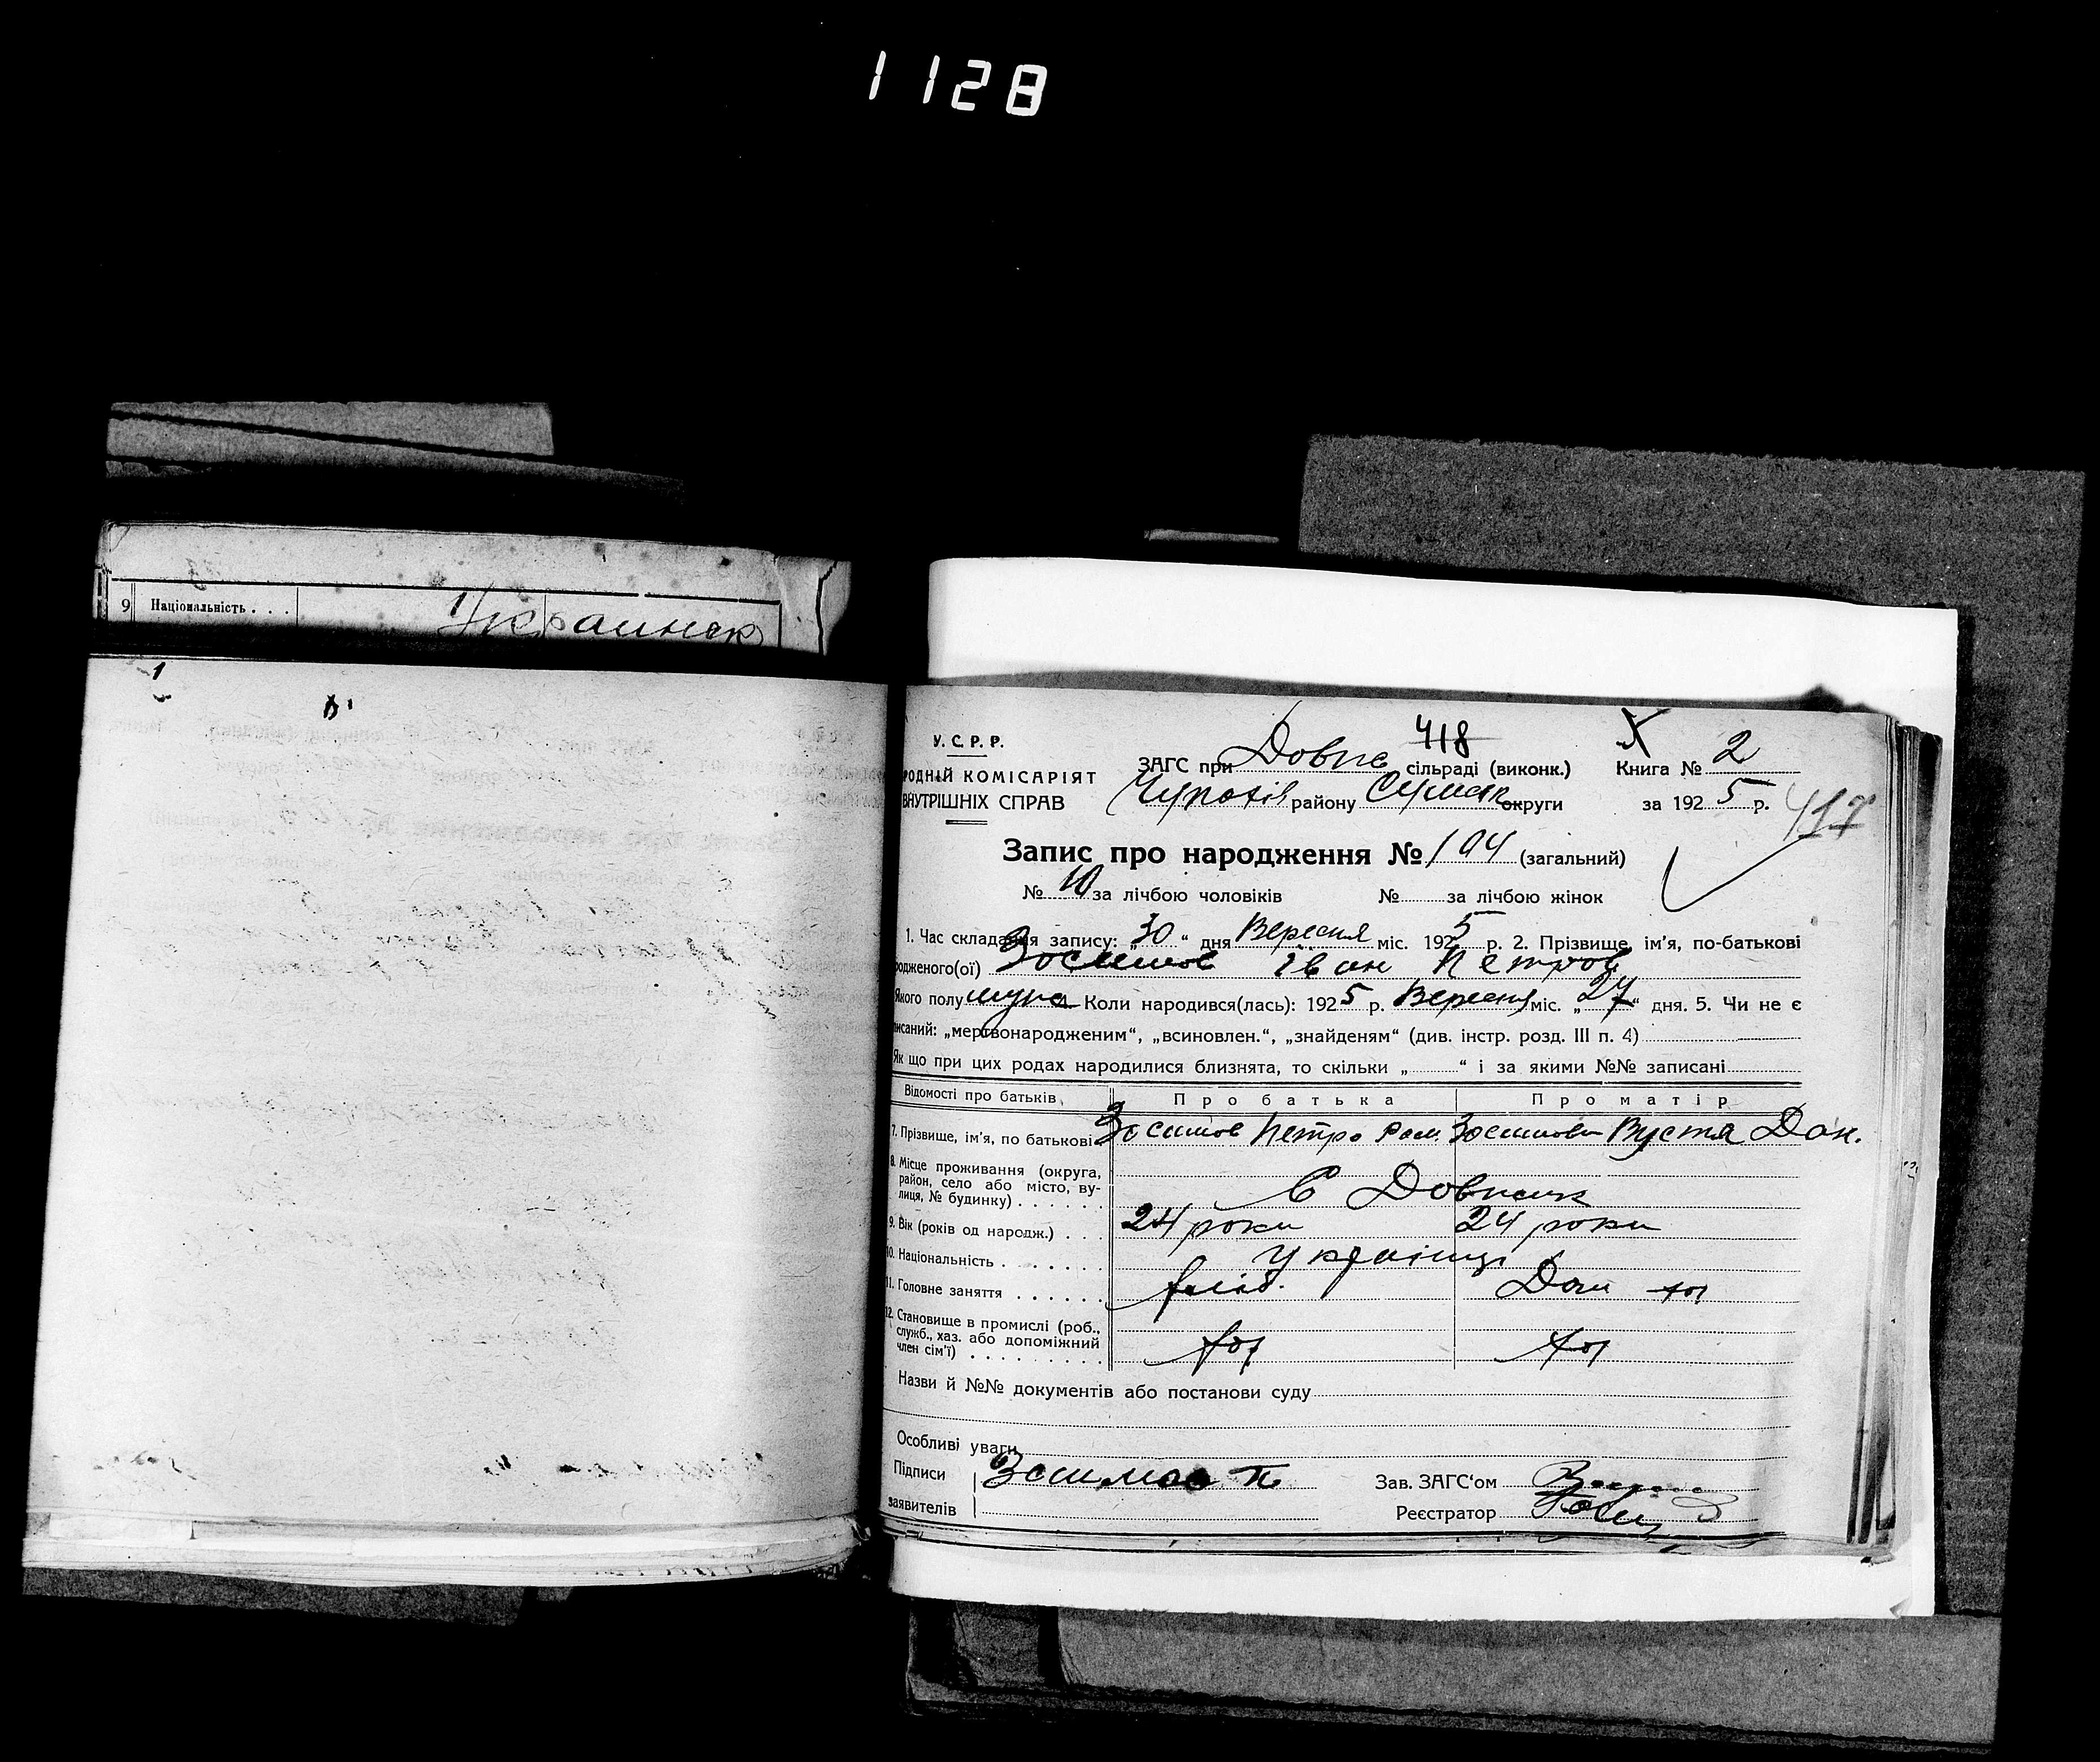 1128
9 Національність . . . Украинск
У. С. Р. Р.
РОДНІЙ КОМІСАРІЯТ
ВНУТРІШНІХ СПРАВ
418
ЗАГС при Довпс сільраді (виконк.) Книга № 2
Чупахів району Сумськ округи за 1925 р.
417
Запис про народження № 194 (загальний)
№ 10 за лічбою чоловіків № за лічбою жінок
1. Час складання запису: „30“ дня Вересня міс. 1925 р. 2. Прізвище, ім'я, по-батькові
родженого(ої) Зосимов Іван Петров
Якого полу муж 4. Коли народився(лась): 1925 р. Вересня міс. „27“ дня. 5. Чи не є
писаний: „мертвонародженим“, „всиновлен.“, „знайденям“ (див. інстр. розд. III п. 4)
Як що при цих родах народилися близнята, то скільки „ “ і за якими №№ записані
Відомості про батьків Про батька Про матір
7. Прізвище, ім'я, по батькові Зосимов Петро Ром. Зосимова Вустя Дан.
8. Місце проживання (округа,
район, село або місто, ву-
лиця, № будинку) . . . . . . С Довжик
9. Вік (років од народж.) . . . 24 роки 24 роки
10. Національність . . . . . . . Українці
11. Головне заняття . . . . . . хліб. Дом
12. Становище в промислі (роб.,
служб., хаз. або допоміжний
член сім'ї) . . . . . . . . .
Назви й №№ документів або постанови суду
Особливі уваги
Підписи Зосимов П Зав. ЗАГС'ом
заявителів Реєстратор